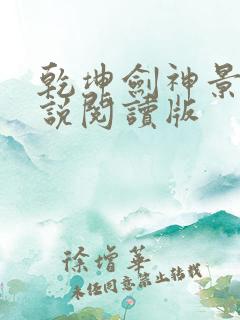 乾坤劍神景
說閱讀版
徐增華
未經同意禁止轉載